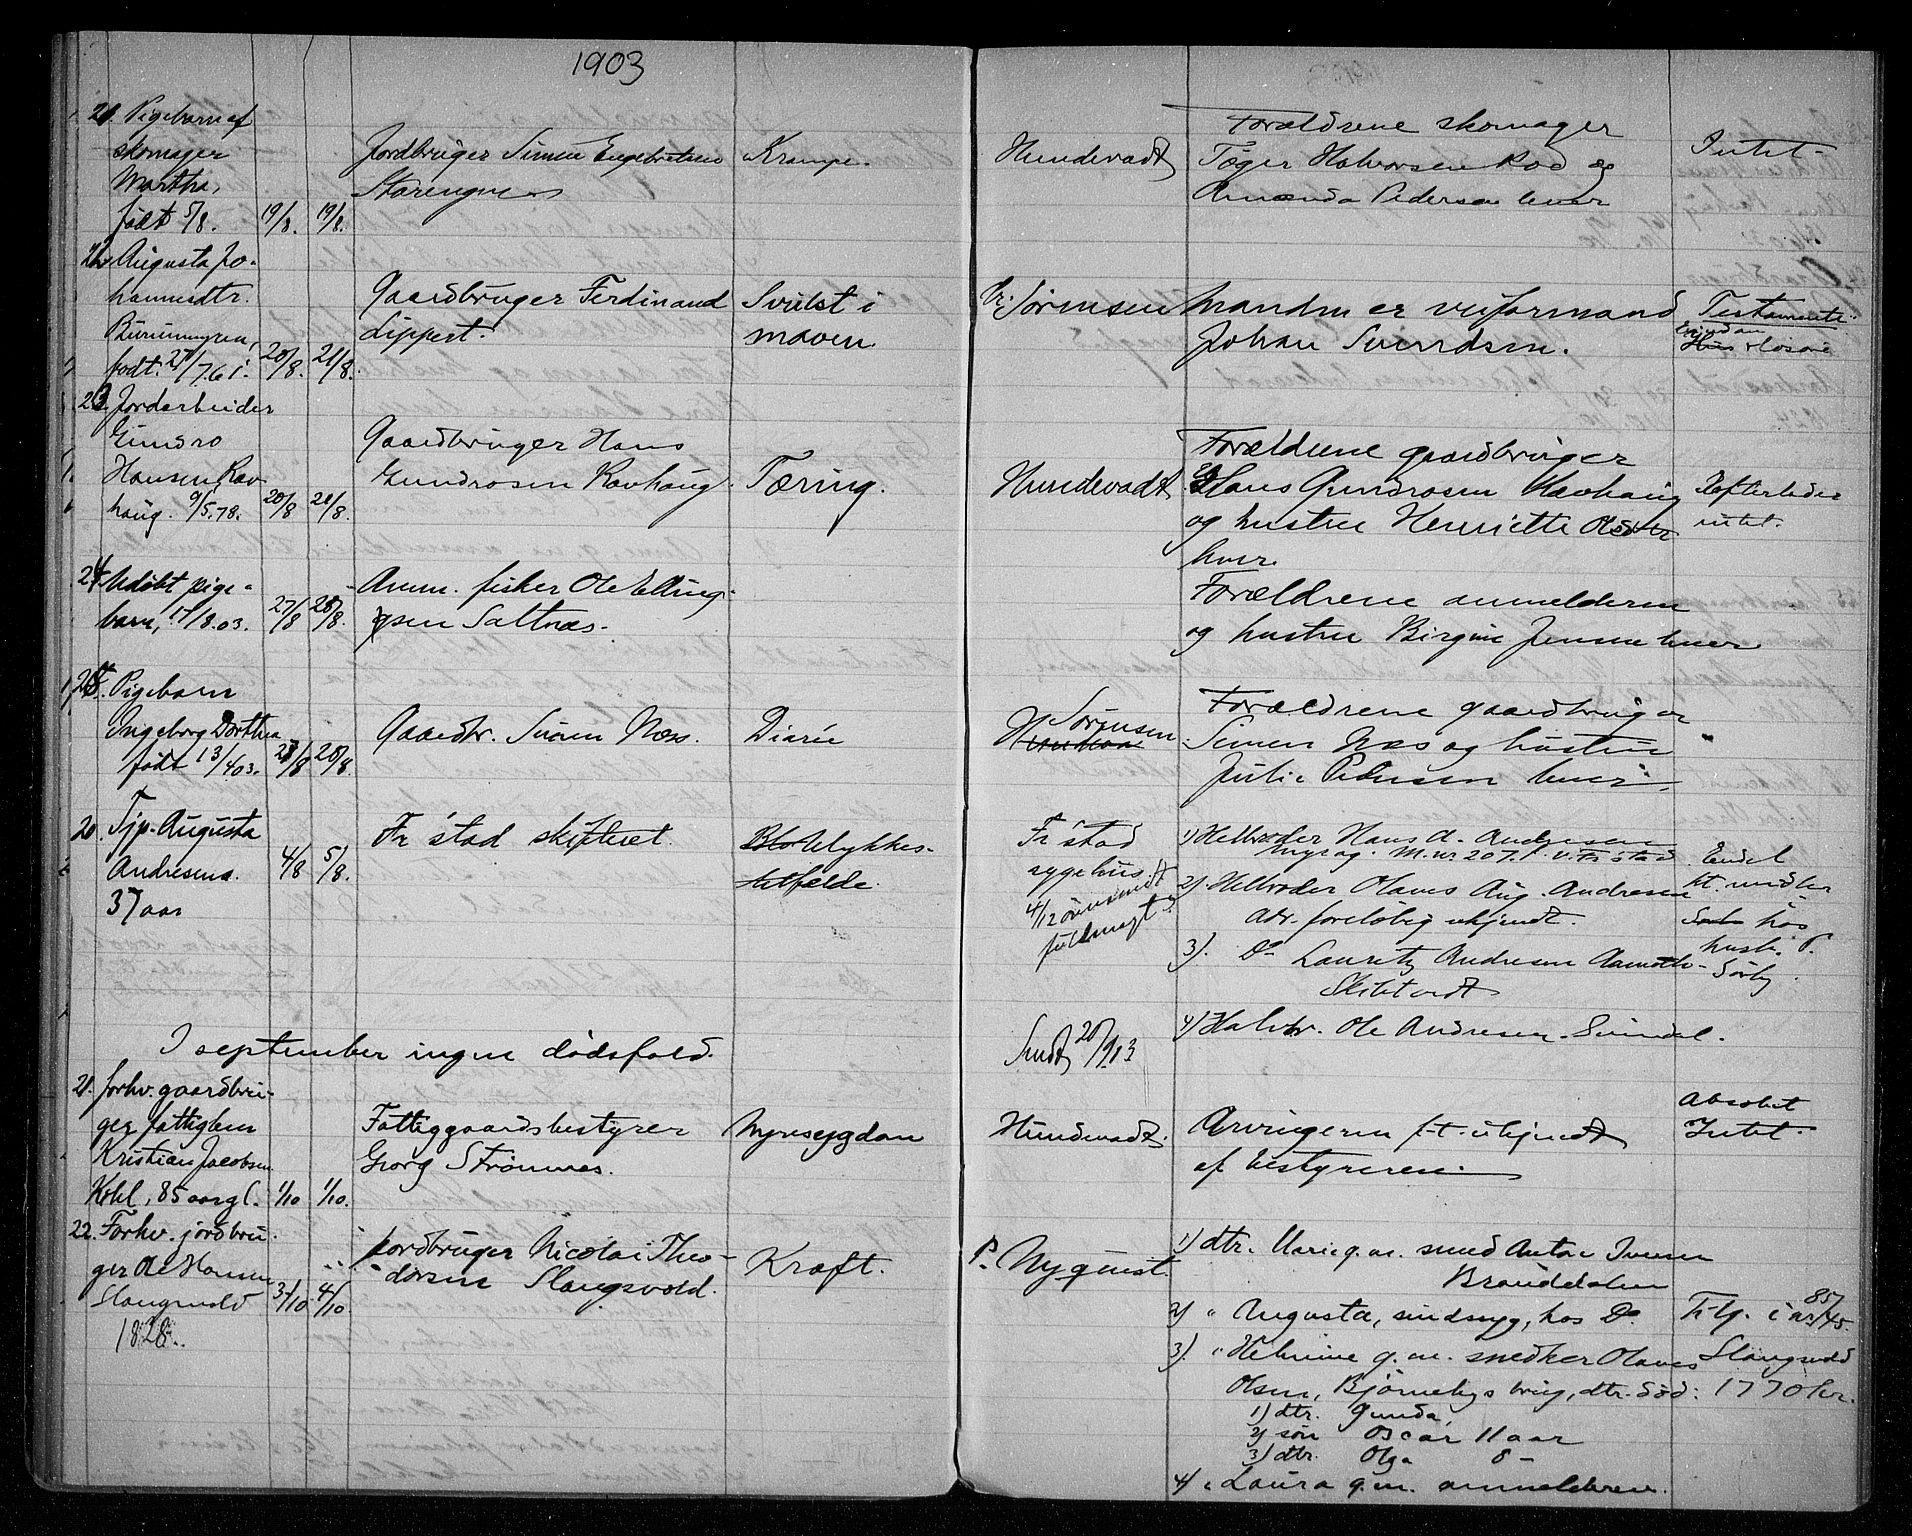 1903
21. Pigebarn af
skomager
Martha,
født 5/8. 19/8. 19/8.
Jordbruger Simen Engebretsen
Krampe.
Hundevadt
Forældrene skomager
Halvorsen Rød og
Amanda Pedersen lever
Intet
22 Augusta Jo-
hannesdtr.
født 27/7.61. 20/8. 21/8.
Gaardbruger Ferdinand
Lippest.
Svulst i
maven.
Sørensen
Manden er veiformand
Johan Svendsen.
Testamente.
Hus + løsøre
23. Jordarbeider
Gundro
Hansen Rav-
haug. 9/5.78. 20/8 21/8.
Gaardbruger Hans
Gundrosen Ravhaug.
Tæring.
Hundevadt.
Forældrene gaardbruger
Hans Gundrosen Ravhaug
og hustru Henriette Olsdtr
lever.
Efterlader
intet.
24 Udøbt pige-
barn, 17/8.03. 27/8 28/8.
Anm. fisker Ole Elling-
sen Saltnæs.
Forældrene anmelderen
og hustru Birgine Jensen lever
25. Pigebarn
Ingeborg Dorthea
født 13/4 03. 27/8 28/8.
Gaardbr. Simen Næs.
Diaré
Sørensen
Forældrene gaardbruger
Simen Næs og hustru
Julie Pedersen lever.
20. Tjp. Augusta
Andresen
37 aar
4/8 5/8.
Fr'stad skifteret.
Ulykkes-
tilfælde.
Fr'stad
sygehus
4/12
fuldmagt
1) Helbroder Hans A. Andresen
M.nr 207. v. Fr'stad
2) Helbroder Olaves Aug. Andresen
Adr. foreløbig ukjendt.
3). Do Lauritz Andresen
Skibtvedt
4) Halvbr. Ole Andresen Svindal.
Endel
kl. midler
hos
husb. P.
Sørby.
Sendt 20/9 03
I september ingen dødsfald.
21. forhv. gaardbru-
ger, fattiglem
Kristian Jacobsen
Kohl, 85 aar gl. 1/10 1/10.
Fattiggaardsbestyrer
Georg Strømnes.
Nyresygdom
Hundevadt.
Arvingerne f.t. ukjendt
af bestyreren.
Absolut
Intet.
22. Forhv. jordbru-
ger Ole Hansen
Slangsvold 3/10 4/10.
1828.
Jordbruger Nicolai Theo-
dorsen Slangsvold.
Kræft.
P. Nyquist.
1) dtr. Marie g.m. smed Anton Iversen
Branddalen
2) " Augusta, sindsyg, hos Do.
3). " Helmine g.m. snedker Olaves
Olsen, Bjørnebys brug, dtr. død:
1) dtr. Gunda,
2) søn Oscar 11 aar
3) dtr. Olga 8 -
4) " Laura g.m. anmelderen.
Tilg. i nr 85/45.
Slangsvold
1770 kr.